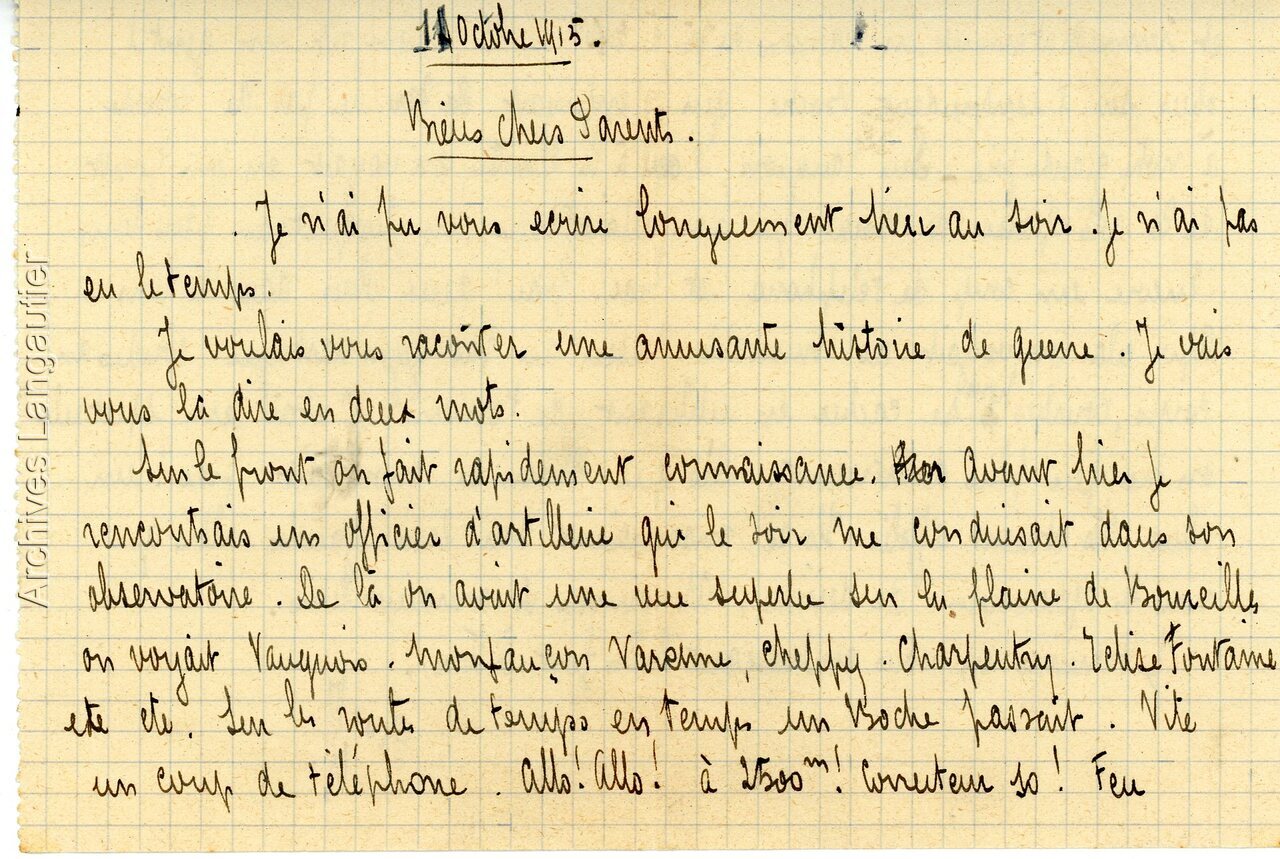 11 Octobre 1915.
Biens chers Parents.
Je n'ai pu vous ecrire longuement hier au soir. Je n'ai pas
eu le temps.
Je voulais vous raconter une amusante histoire de guerre. Je vais
vous la dire en deux mots.
Sur le front on fait rapidement connaissance. Avant hier Je
rencontrais un officier d'artillerie qui le soir me conduisait dans son
observatoire. De là on avait une vue superbe sur la plaine de Boureilles
on voyait Vauquois. Monfauçon Varenne, Cheppy. Charpentry. Eclise Fontaine
etc etc. Sur les routes de temps en temps un Boche passait. Vite
un coup de téléphone. Allo! Allo! à 2500m! Correcteur 10! Feu
Archives Langautier